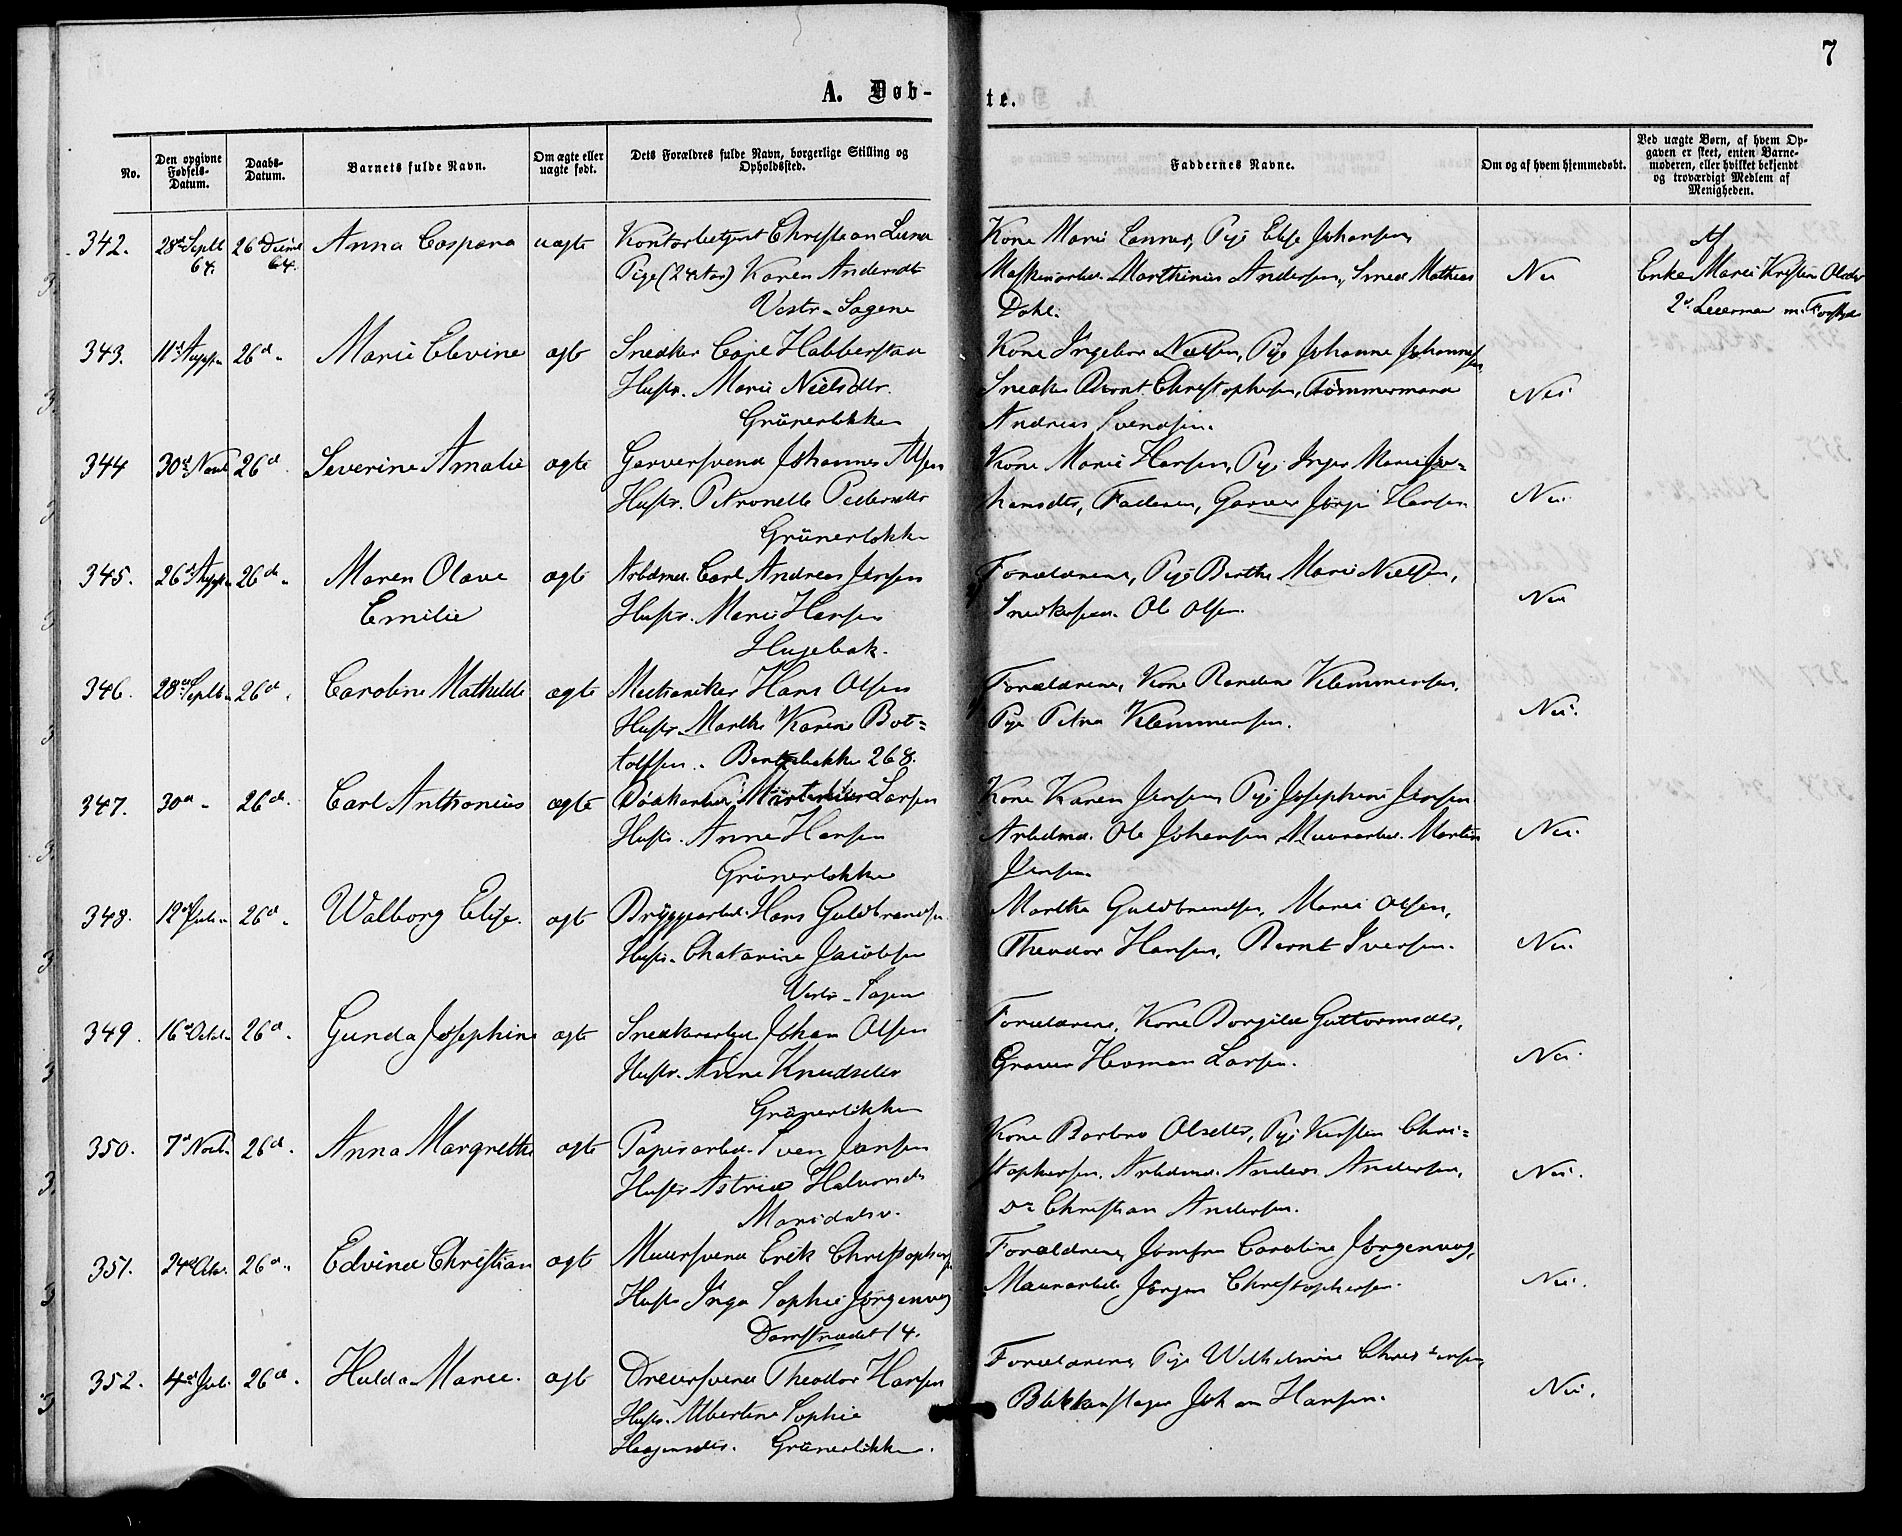 7
A. Døb-
te.
No.
Den opgivne Fødsels-Datum.
Daabs-Datum.
Barnets fulde Navn.
Om ægte eller uægte født.
Dets Forældres fulde Navn, borgerlige Stilling og Opholdssted.
Faddernes Navne.
Om og af hvem hjemmedøbt.
Ved uægte Børn, af hvem Op-
gaven er skeet, enten Barne-
moderen, eller hvilket bekjendt
og troværdigt Medlem af
Menigheden.
342. 28de Septb 64. 26d Decmb 64. Anna Caspara uægte Kontorbetjent Christian
Pige (24 Aar) Karen Andersdt
Vestr. Sagene
Kone Marie Pige Elise Johansen,
Marthinius Andersen, Smed Mathias
Dahl.
Nei
Af
Enke Marie Kristine Olsdtr
2d Leiermaal
343. 11d 26d. Marie Elevine ægte Snedker Carl Habberstad
Hustr. Marie Nielsdtr.
Grünerløkken
Kone Ingeborg Nielsen, Pige Johanne Johannesen
Snedker Bernt Christophersen, Tømmermand
Andreas Svendsen.
Nei
344 30d Novb 26d Severine Amalie ægte Garversvend Johannes Alfsen
Hustr. Petronelle Pedersdtr
Grünerløkken
Kone Marie Hansen, Pige Inger Marie Jo-
hansdtr, Faderen, Garver Jørgen Hansen
Nei.
345. 26d 26de. Maren Olave ægte Arbdmd. Carl Andreas Jensen
Emilie Hustr. Marie Hansen
Hugebak.
Forældrene, Pige Berthe Marie Nielsen,
Ole Olsen.
Nei
346. 28de Septb. 26d. Caroline Mathilde ægte Mechaniker Hans Olsen
Hustr. Marthe Karine Bot-
tolfsen. 268.
Forældrene, Kone Randine Klemmensen,
Pige Petra Klemmensen.
Nei.
347. 30d. 26d. Carl Anthonius ægte Larsen
Hustr. Anne Hansen
Grünerløkken
Kone Karen Jensen, Pige Josephine Jensen
Arbdmd. Ole Johansen, Muurarbd. Martin
Jensen
Nei.
348. 12d Juli. 26d. Walborg Elise. ægte Bryggearbd. Hans Guldbrandsen
Hustr. Chatarine Jacobsen
Vestr. Sagen
Marthe Guldbrandsen, Marie Olsen,
Theodor Hansen, Bernt Iversen.
Nei.
349. 16d Octb. 26d. Gunda Josephine ægte Snedkerarbd. Johan Olsen
Hustr. Anne Knudsdtr
Grünerløkken
Forældrene, Kone Borgild Guttormsdtr,
Graver Herman Larsen.
Nei
350. 7d Novb. 26d. Anna Margrethe ægte Papirarbd. Sven Jansen
Hustr Astrid Halvorsdtr
Maridalsv.
Kone Barbro Olsdtr, Pige Kirsten Chri-
stophersen, Arbdmd. Anders Andersen,
Do Christian Andersen.
Nei.
351. 24d 26d. Edvind Christian ægte Muursvend Erik Christophersen
Hustr Inga Sophie Jørgenvog
Damstrædet 14.
Forældrene, Jomfru Caroline Jørgenvog,
Muurarbd. Jørgen Christophersen.
Nei.
352. 4d Juli. 26d. Hulda Marie. ægte Dreiersvend Theodor Hansen
Hustr. Albertine Sophie
Haagensdtr. Grünerløkken.
Forældrene, Pige Wilhelmine Christensen,
Blikkenslager Johan Hansen.
Nei.